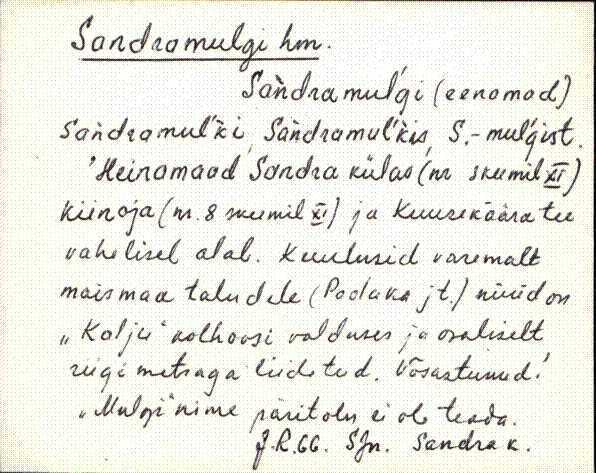 Sandramulgi hm.
Sańdramul'gi (eenamad)
Sańdramul'ki, Sańdramul'kis, S.-mul'gist.
'Heinamaad Sandra külas (nr skeemil XI)
Kiinoja (nr. 8 skeemil XI) ja Kuusekäära tee
vahelisel alal. Kuulusid varemalt
maismaa taludele (Padaka jt.) nüüd on
„Kalju" kolhoosi valduses ja osaliselt
riigi metsaga liidetud. Võsastunud.'
„Mulgi" nime päritolu ei ole teada.
J.R. 66. SJn. Sandra k.